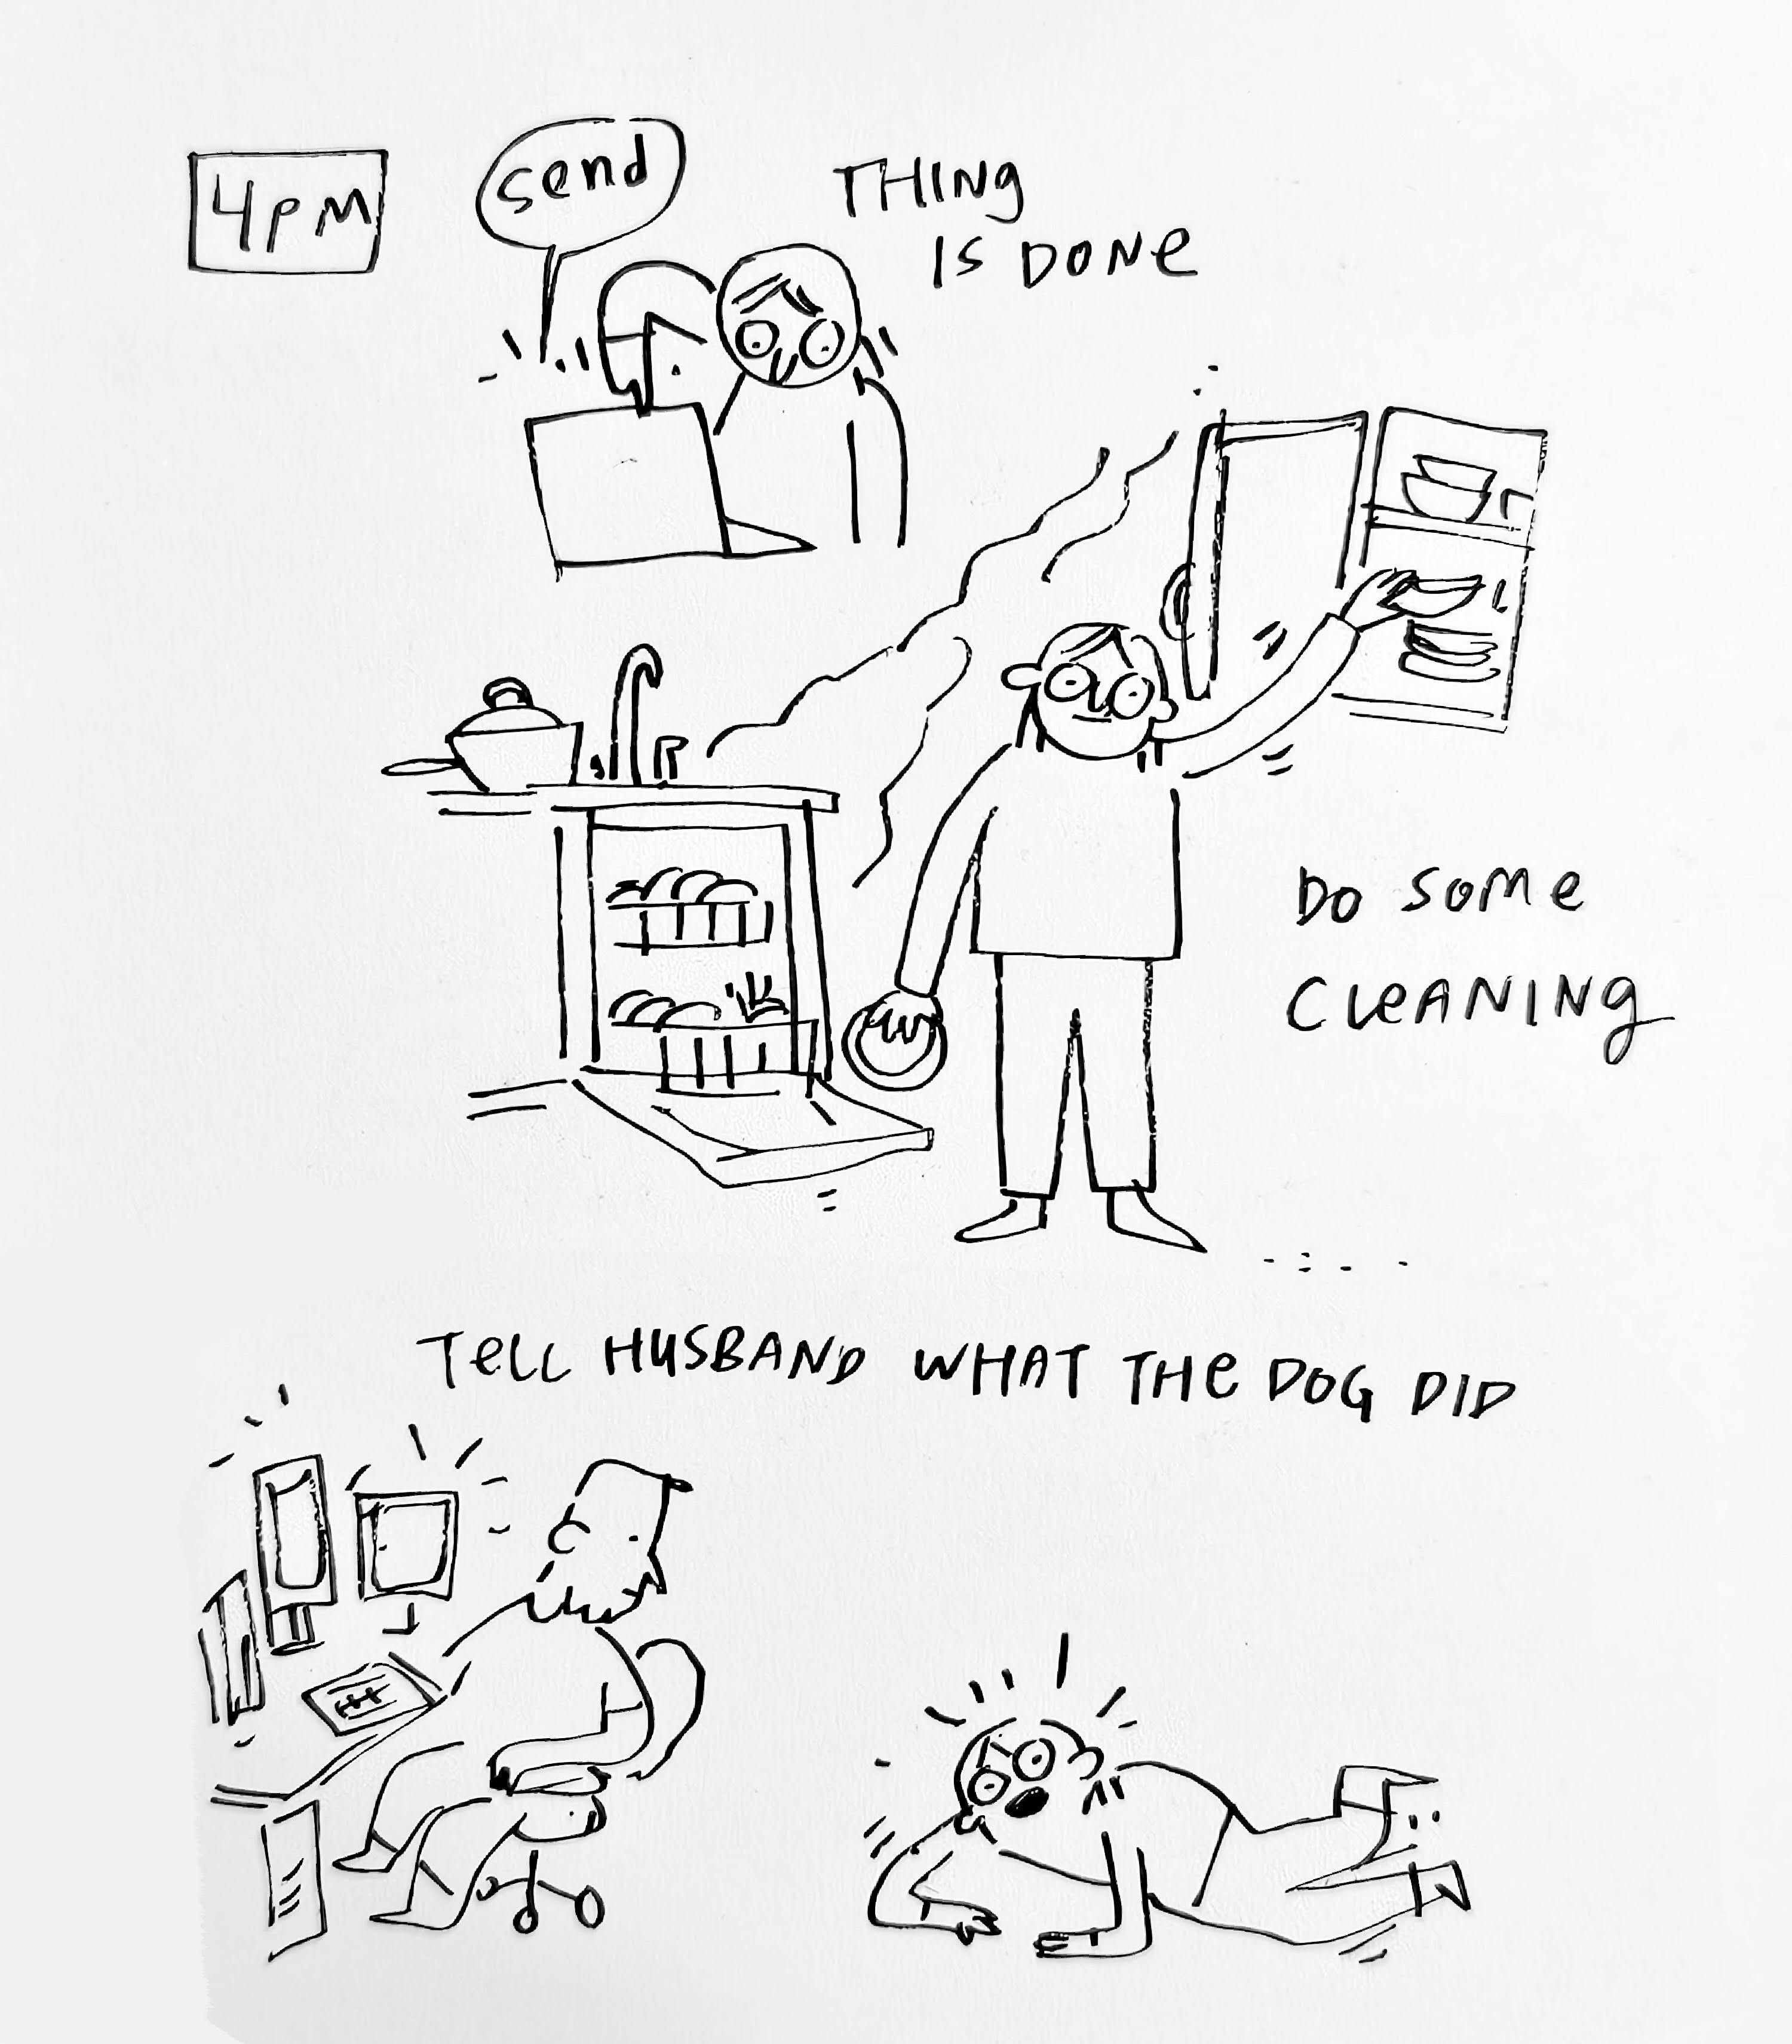 4PM
send
THING
IS DONE
DO SOME
CLEANING
TELL HUSBAND WHAT THE DOG DID